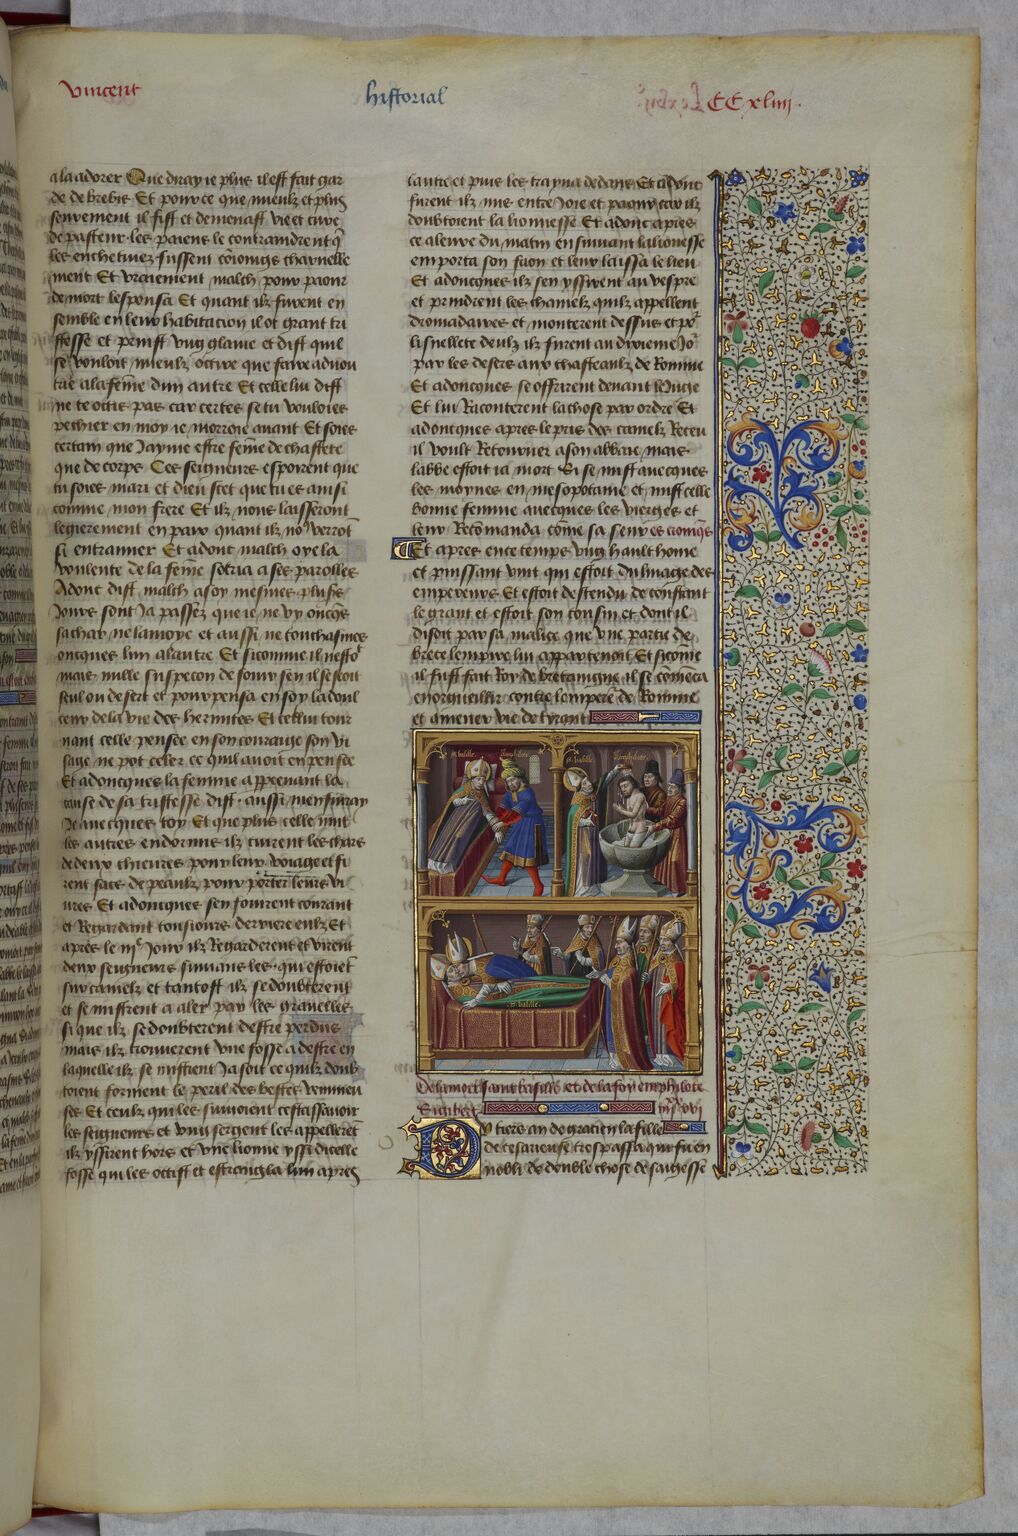 Vincent
historial
CC xliiii.
a la adorer Que diray ie plus il est fait gar
de de brebis Et pour ce que mieulx et plus
souvement il fist et demenast vie et cure
de pasteur les paiens le contraindrent q̄
les enchetivez fussent conioings charnelle
ment Et vraiement malch pour paour
de mort lespousa Et quant ilz furent en
semble en leur habitacion il ot grant tri
stesse et prinst vng glaive et dist quil
se vouloit mieulx occire que faire aduou
trie a la fēme dun autre Et celle lui dist
ne te occis pas car certes se tu vouloies
pechier en moy ie morroie auant Et soies
certain que Jayme estre fēme de chastete
que de corps Ces seigneurs esperent que
tu soies mari et dieu scet que tu es ainsi
comme mon frere Et ilz nous laisseront
legierement en paix quant ilz no⁹ verrōt
si entramer Et adont malch oye la
voulente de la fēme sotria a ses parolles
Adont dist malch a soy mesmes plus⁹
Jours sont Ja passez que ie ne vy oncq̄s
sachar ne lamoye et aussi ne touchasmes
oncques lun a lautre Et si comme il nesto⁹
mais mille suspecon de fouir sen il se seoit
seul ou desert et pourpensa en soy la doul
ceur de la vie des hermites Et cellui tour
nant celle pensee en son couraige son vi
sage ne pot celer ce quil auoit en pensee
Et adoncques la femme apprenant la
cause de sa tristesse dist aussi men fuiray
Je auecques toy Et que plus celle nuit
les autres endormis ilz cuirent les chars
de deux chieures pour leur voiage et fi
rent sacs de peaulx pour porter leurs vi
ures Et adoncques sen fouirent courant
et Regardant tousiours derriere eulx Et
apres le iii⁹ Jour ilz Regarderent et virent
deux seigneurs suiuans les qui estoiēt
sur camelz et tantost ilz se doubterent
et se mistrent a aler par les grauelles
si que ilz se doubterent destre perdus
mais ilz trouuerent vne fosse a destre en
laquelle ilz se mistrent Ja soit ce quilz doub
toient forment le peril des bestes venimeu
ses Et ceulx qui les suiuoient cestassauoir
les seigneurs et vng sergent les appellerēt
ilz yssirent hors et vne lionne yssi dicelle
fosse qui les occist et estrangla lun apres
lautre et puis les trayna dedans Et adont
furent ilz mis entre Joie et paour car ilz
doubtoient la lionnesse Et adonc apres
ce aleure du matin ensuiuant la lionesse
emporta son faon et leur laissa le lieu
Et adoncques ilz sen yssirent au vespre
et prindrent les chamelz quilz appellent
dromadaires et monterent dessus et p⁹
la isnellete deulx ilz furent au dixieme Jo⁹
par les desers aux chasteaulx de Romme
Et adoncques se offrirent deuant le Juge
Et lui Raconterent la chose par ordre Et
adoncques apres le pris des camelz Receu
il voult Retourner a son abbaie mais
labbe estoit ia mort Si se mist auecques
les moynes en mesopotame et mist celle
bonne femme auecques les vierges et
leur Recōmanda cōme sa seur
Et apres en ce temps vng hault home
et puissant vint qui estoit du linage des
empereurs Et estoit destendu de constant
le grant et estoit son cousin et dont il
disoit par sa malice que vne partie de
brece lempire lui appartenoit Et si cōme
il fust fait Roy de bretaingne il se cōmēca
enorgueillir contre lempere de Romme
et amener vie de tyrant
s⁹ basille.
s⁹ basille.
s⁹ basille.
De la mort saint basille et de la foy emphilote
Sigibert iii⁹ xx xvi
Du tiers an de gracien la fille
de cesarience trespassa qui fu en
nobli de double chose de saigesse